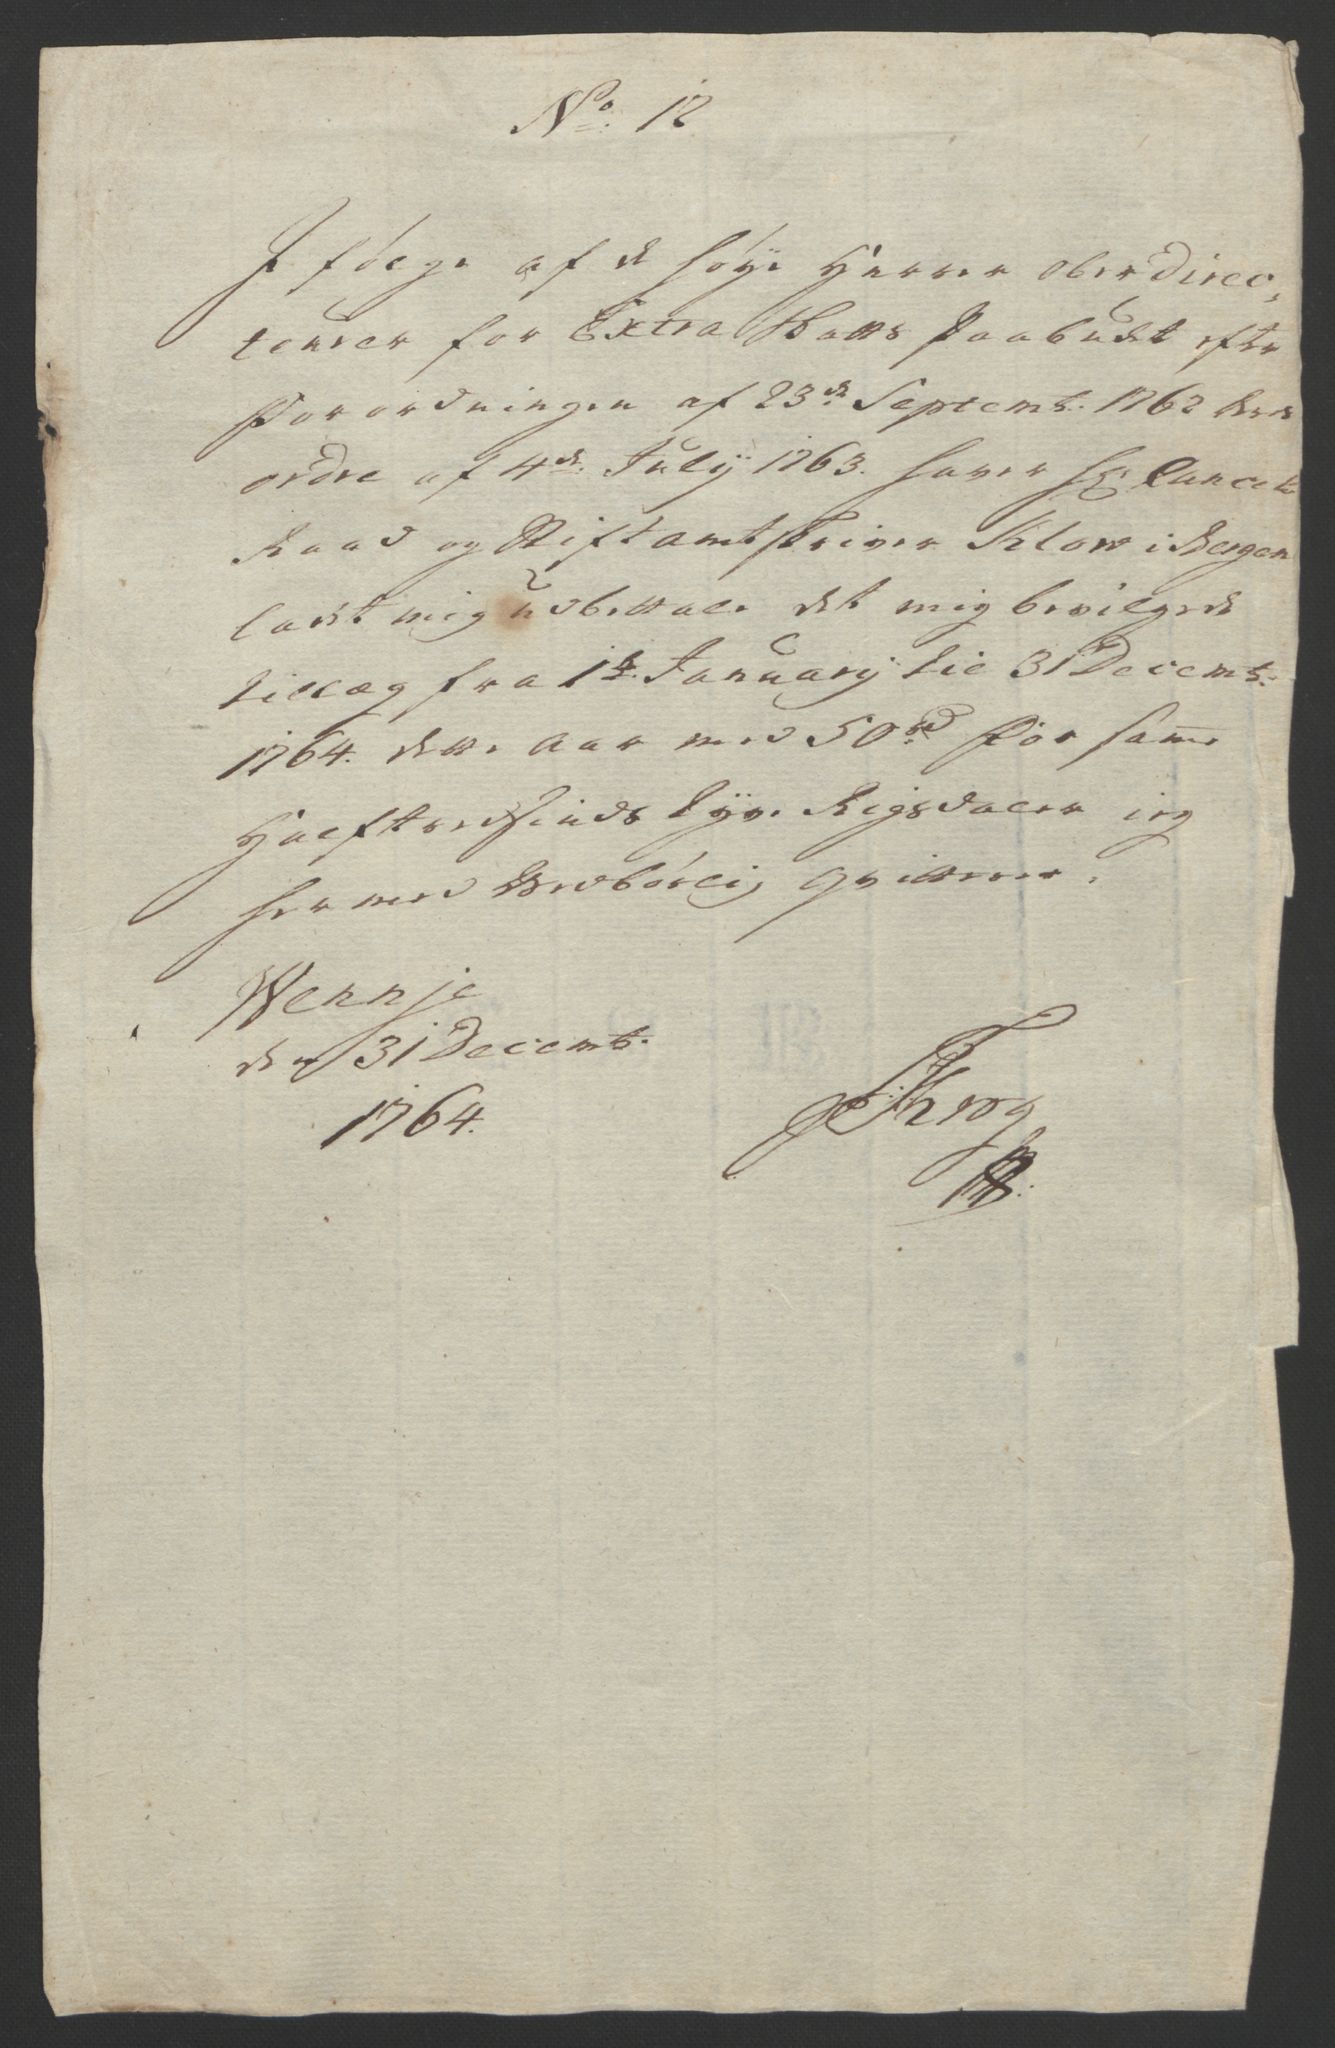 No. 12
I følge af de høye Herrer Ober Direc„
teurer for Extra Skatts Paabudet efter
Forordningen af 23de Septemb: 1762 deres
ordre af 4de July 1763. haver Hr Cancelie
Raad og Stiftamtskriver Klow i Bergen
ladet mig udbettale det mig bevilgede
tillæg fra 1te January til 31 Decemb:
1764. dette Aar med 50 rd for samme
Halftredsinds tyve Rigsdaler jeg
hermed tilbørlig qvitterer.
Wennje
den 31 Decemb:
1764.